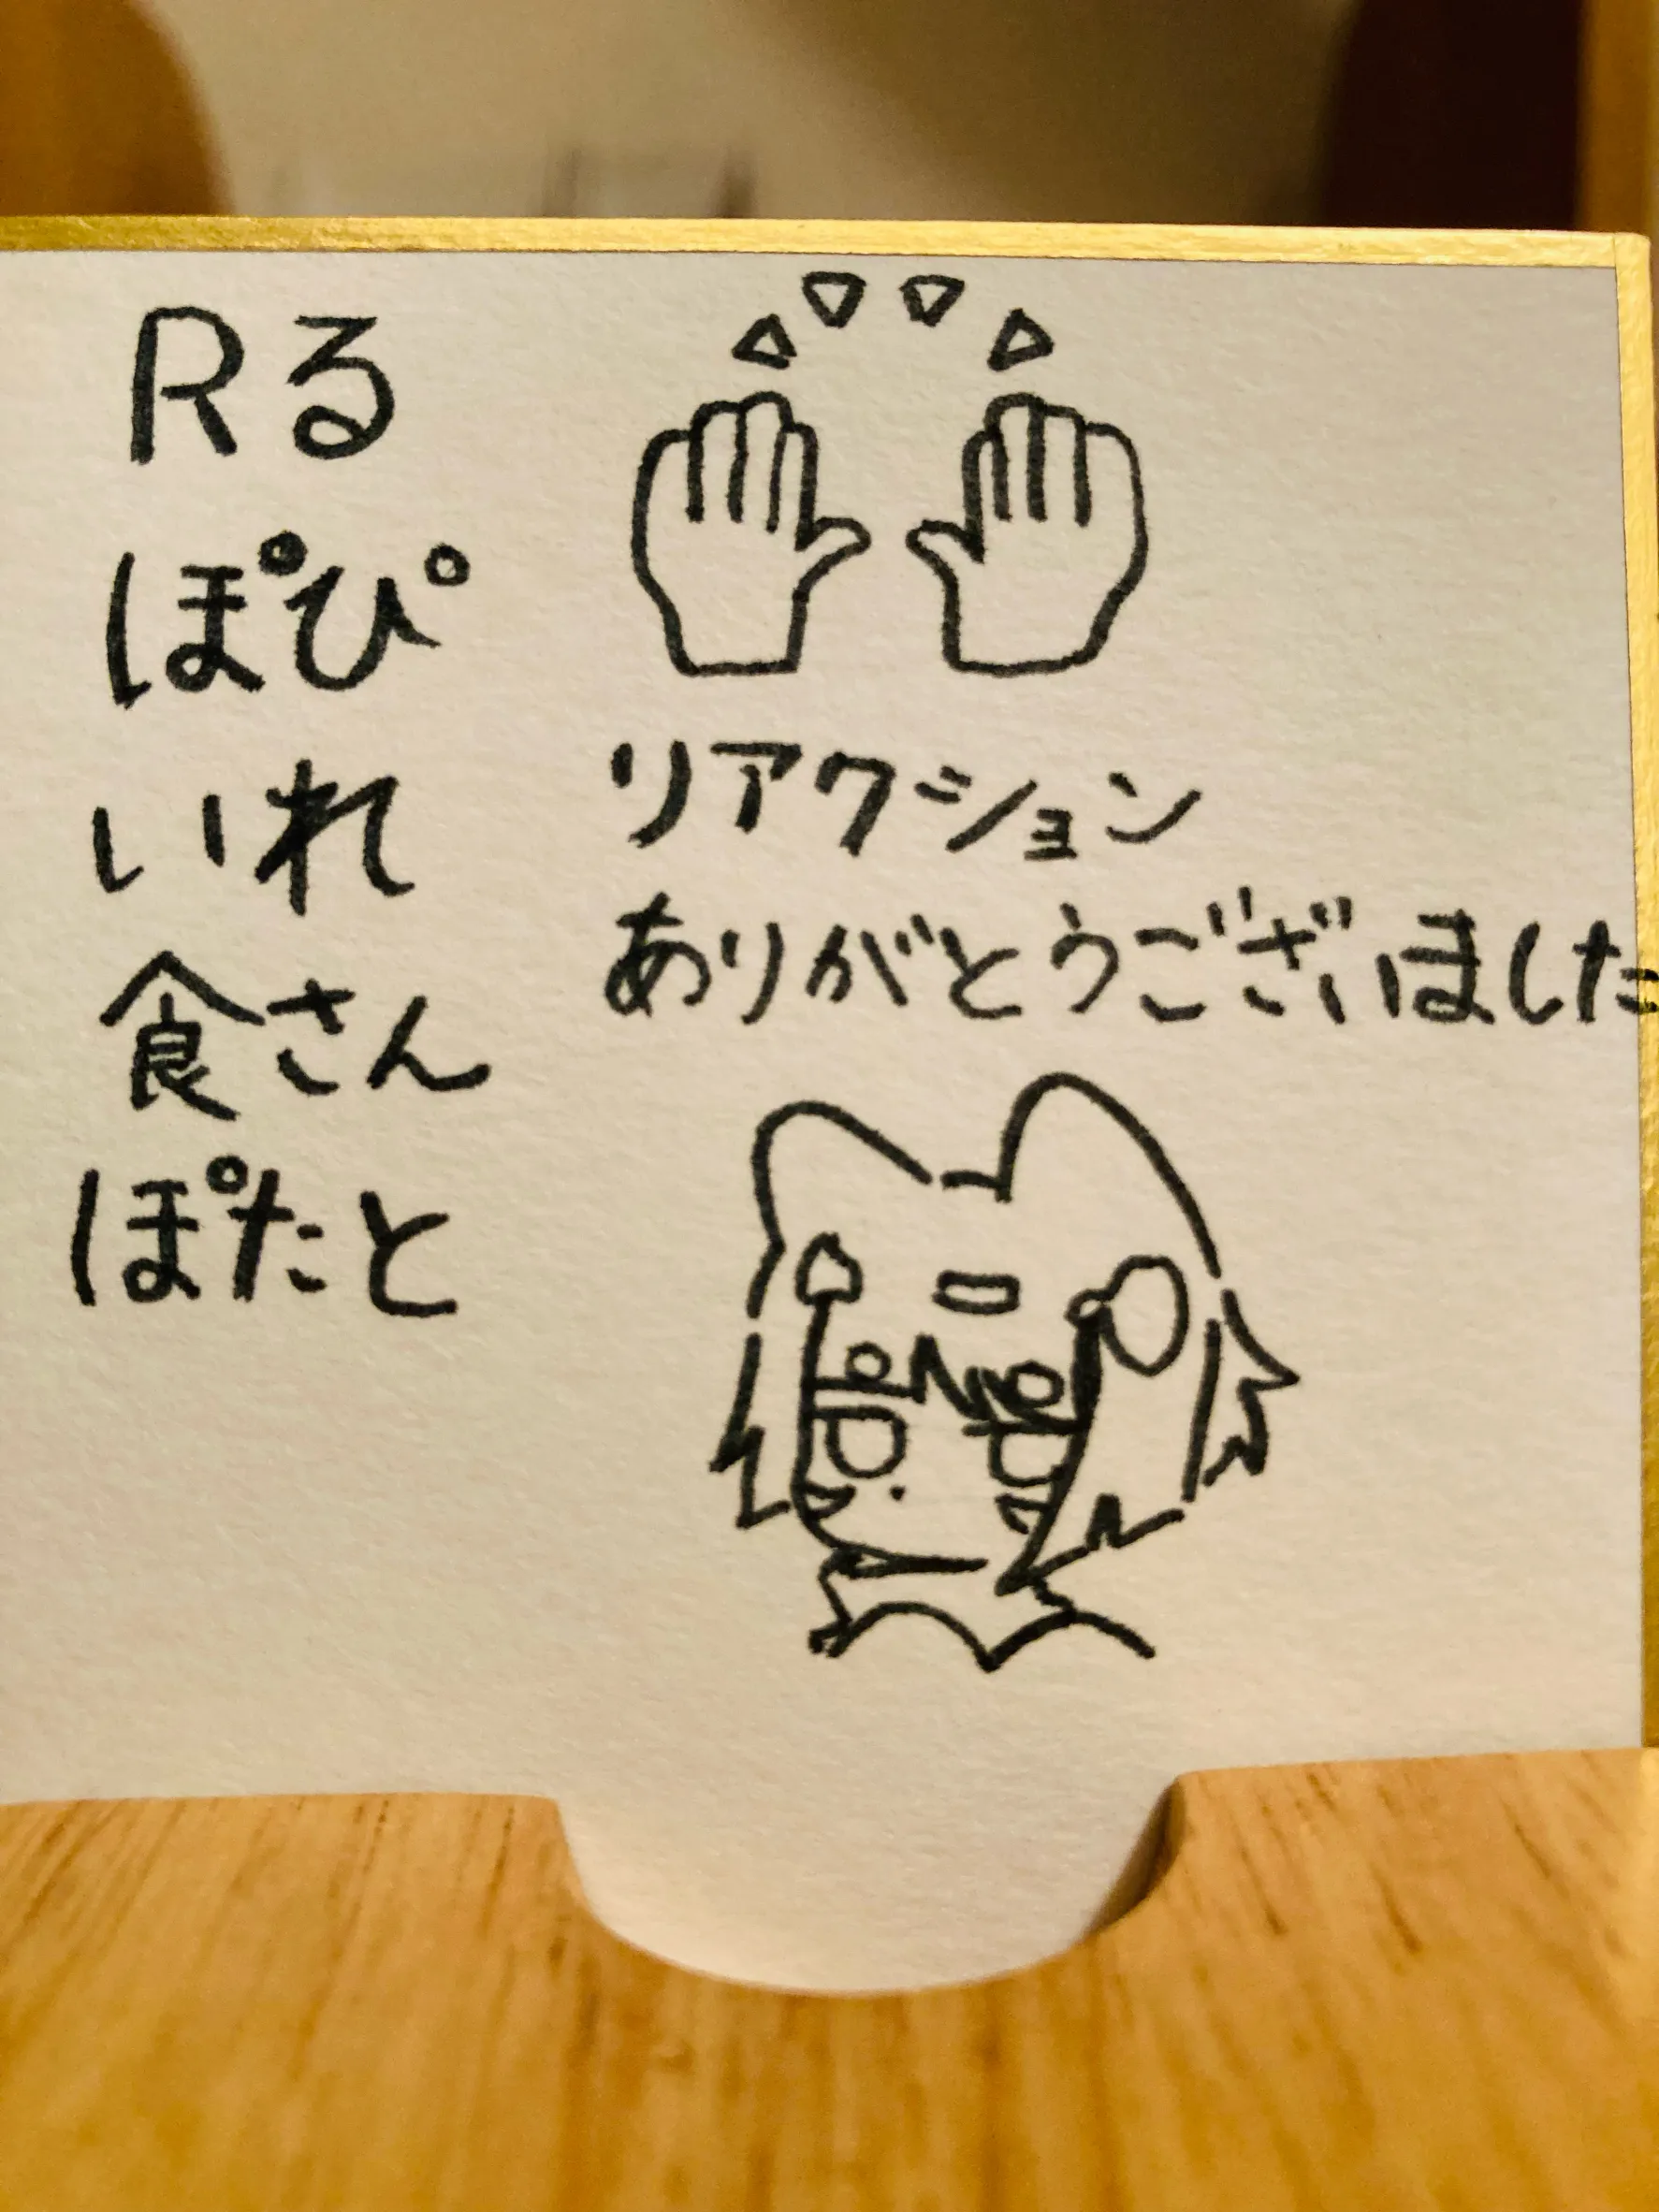 Rる
ぽぴ
いれ
食さん
ぽたと
リアクション
ありがとうございました